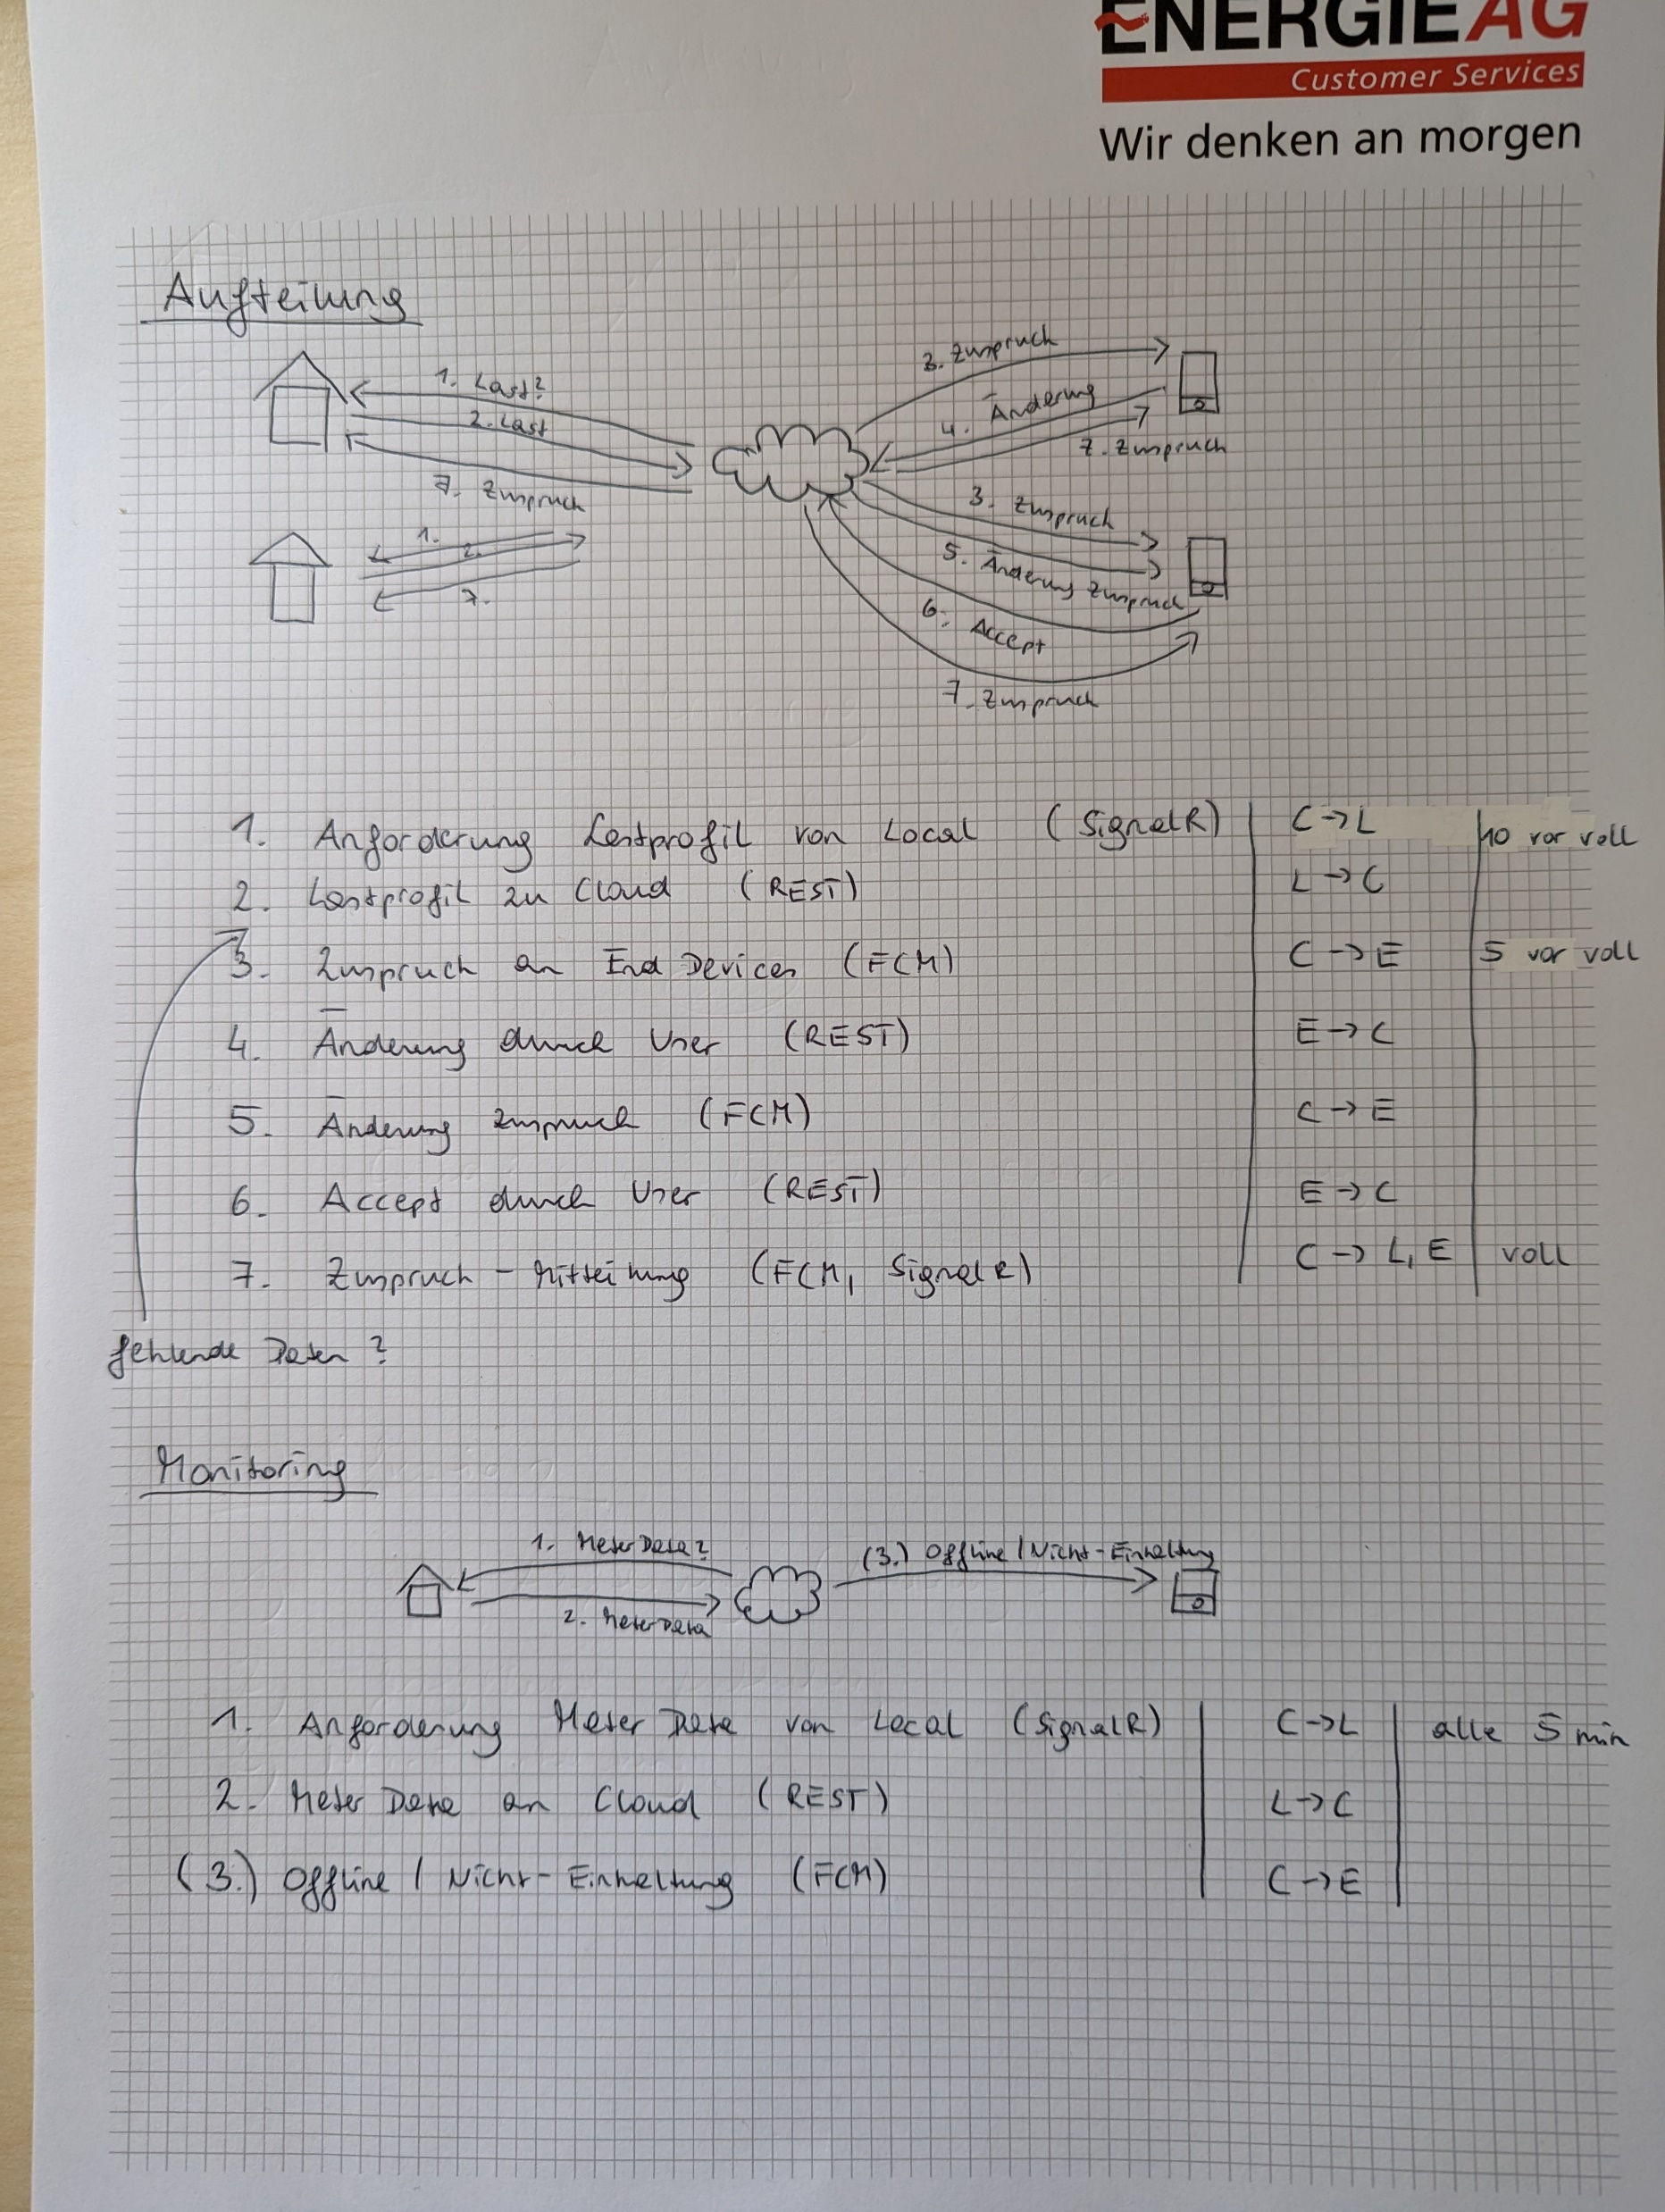 ENERGIEAG
Customer Services
Wir denken an morgen
Aufteilung
1. Last?
2. Last
7. Zuspruch
1.
2.
7.
3. Zuspruch
4. Änderung
7. Zuspruch
3. Zuspruch
5. Änderung Zuspruch
6. Accept
7. Zuspruch
1. Anforderung Lastprofil von Local (SignalR) C → L 10 vor voll
2. Lastprofil zu Cloud (REST) L → C
3. Zuspruch an End Devices (FCM) C → E 5 vor voll
4. Änderung durch User (REST) E → C
5. Änderung Zuspruch (FCM) C → E
6. Accept durch User (REST) E → C
7. Zuspruch - Mitteilung (FCM, SignalR) C → L, E voll
fehlende Daten?
Monitoring
1. MeterData?
2. MeterData
(3.) Offline / Nicht-Einhaltung
1. Anforderung Meter Data von Local (SignalR) C → L alle 5 min
2. Meter Data an Cloud (REST) L → C
(3.) Offline / Nicht-Einhaltung (FCM) C → E